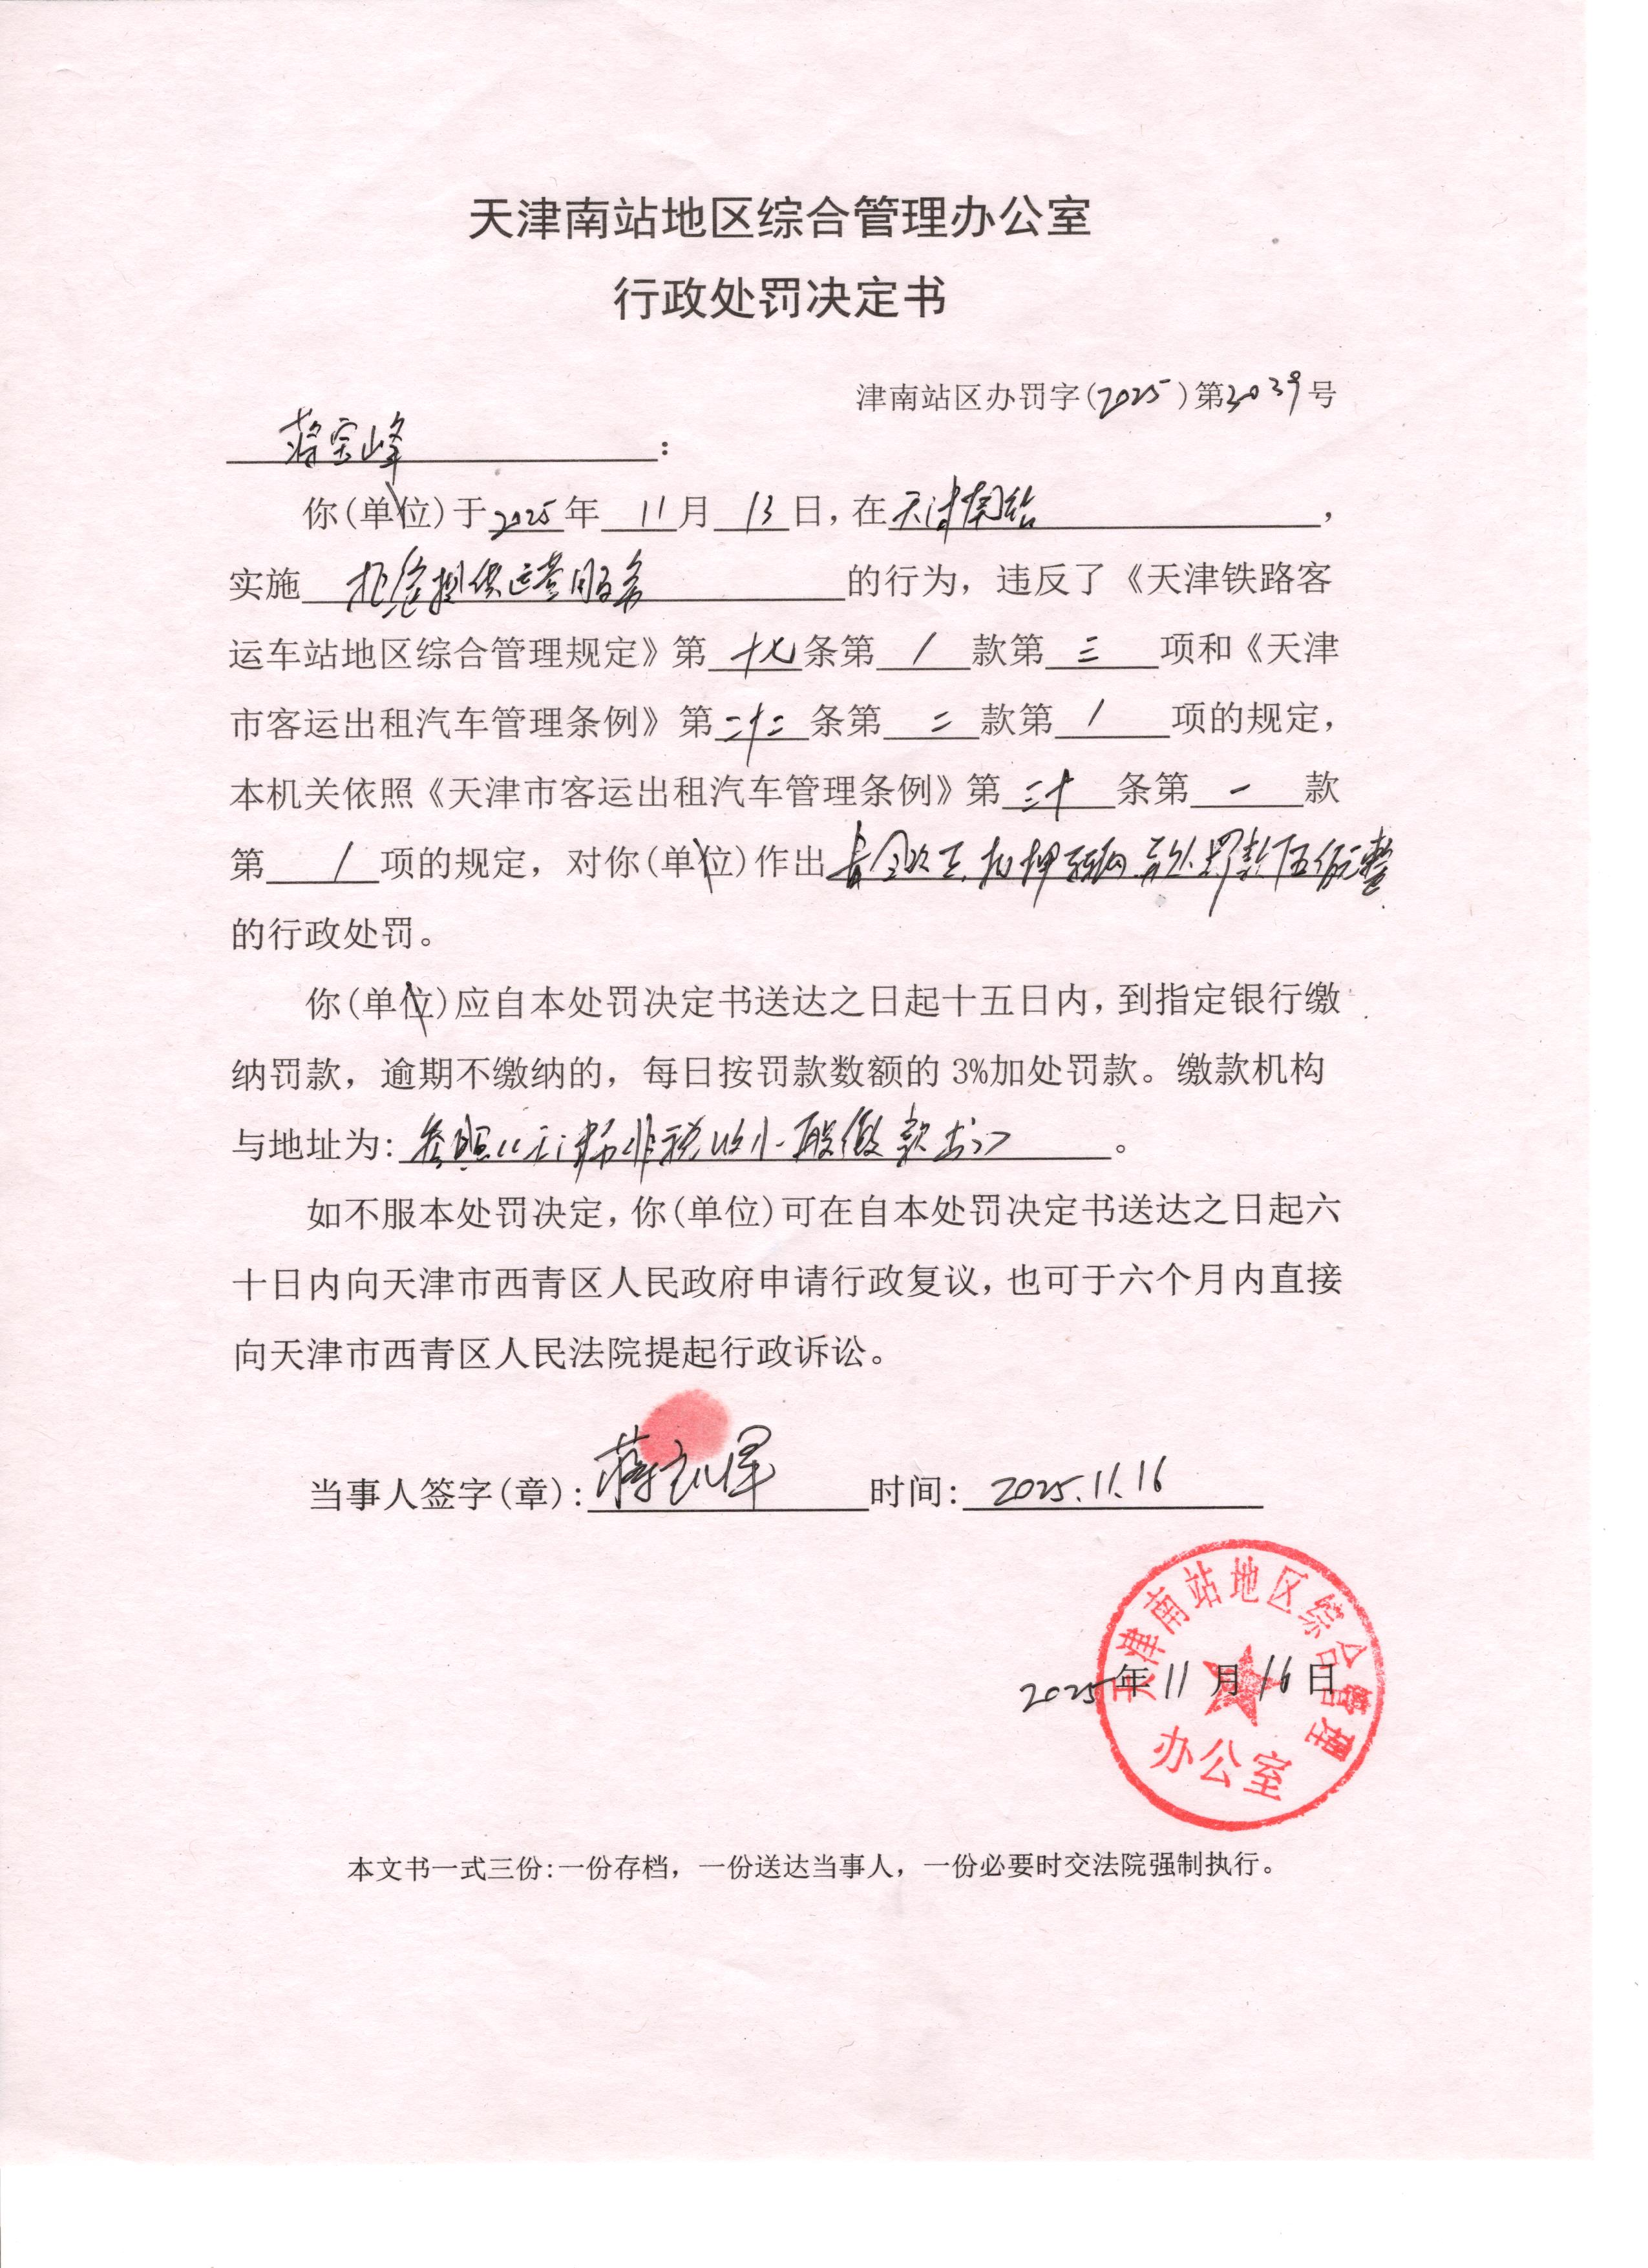 天津南站地区综合管理办公室
行政处罚决定书
津南站区办罚字(2025)第3039号
蒋宗峰:
你(单位)于2025年11月13日,在天津南站,
实施拒绝提供运营服务的行为,违反了《天津铁路客
运车站地区综合管理规定》第十七条第/款第三项和《天津
市客运出租汽车管理条例》第二十二条第二款第/项的规定,
本机关依照《天津市客运出租汽车管理条例》第三十条第一款
第/项的规定,对你(单位)作出责令改正 车辆 处罚款伍佰元整
的行政处罚。
你(单位)应自本处罚决定书送达之日起十五日内,到指定银行缴
纳罚款,逾期不缴纳的,每日按罚款数额的3%加处罚款。缴款机构
与地址为:参照《天津市非税收入一般缴款书》。
如不服本处罚决定,你(单位)可在自本处罚决定书送达之日起六
十日内向天津市西青区人民政府申请行政复议,也可于六个月内直接
向天津市西青区人民法院提起行政诉讼。
当事人签字(章):蒋 时间:2025.11.16
天津南站地区综合管理
2025年11月16日
办公室
本文书一式三份:一份存档,一份送达当事人,一份必要时交法院强制执行。